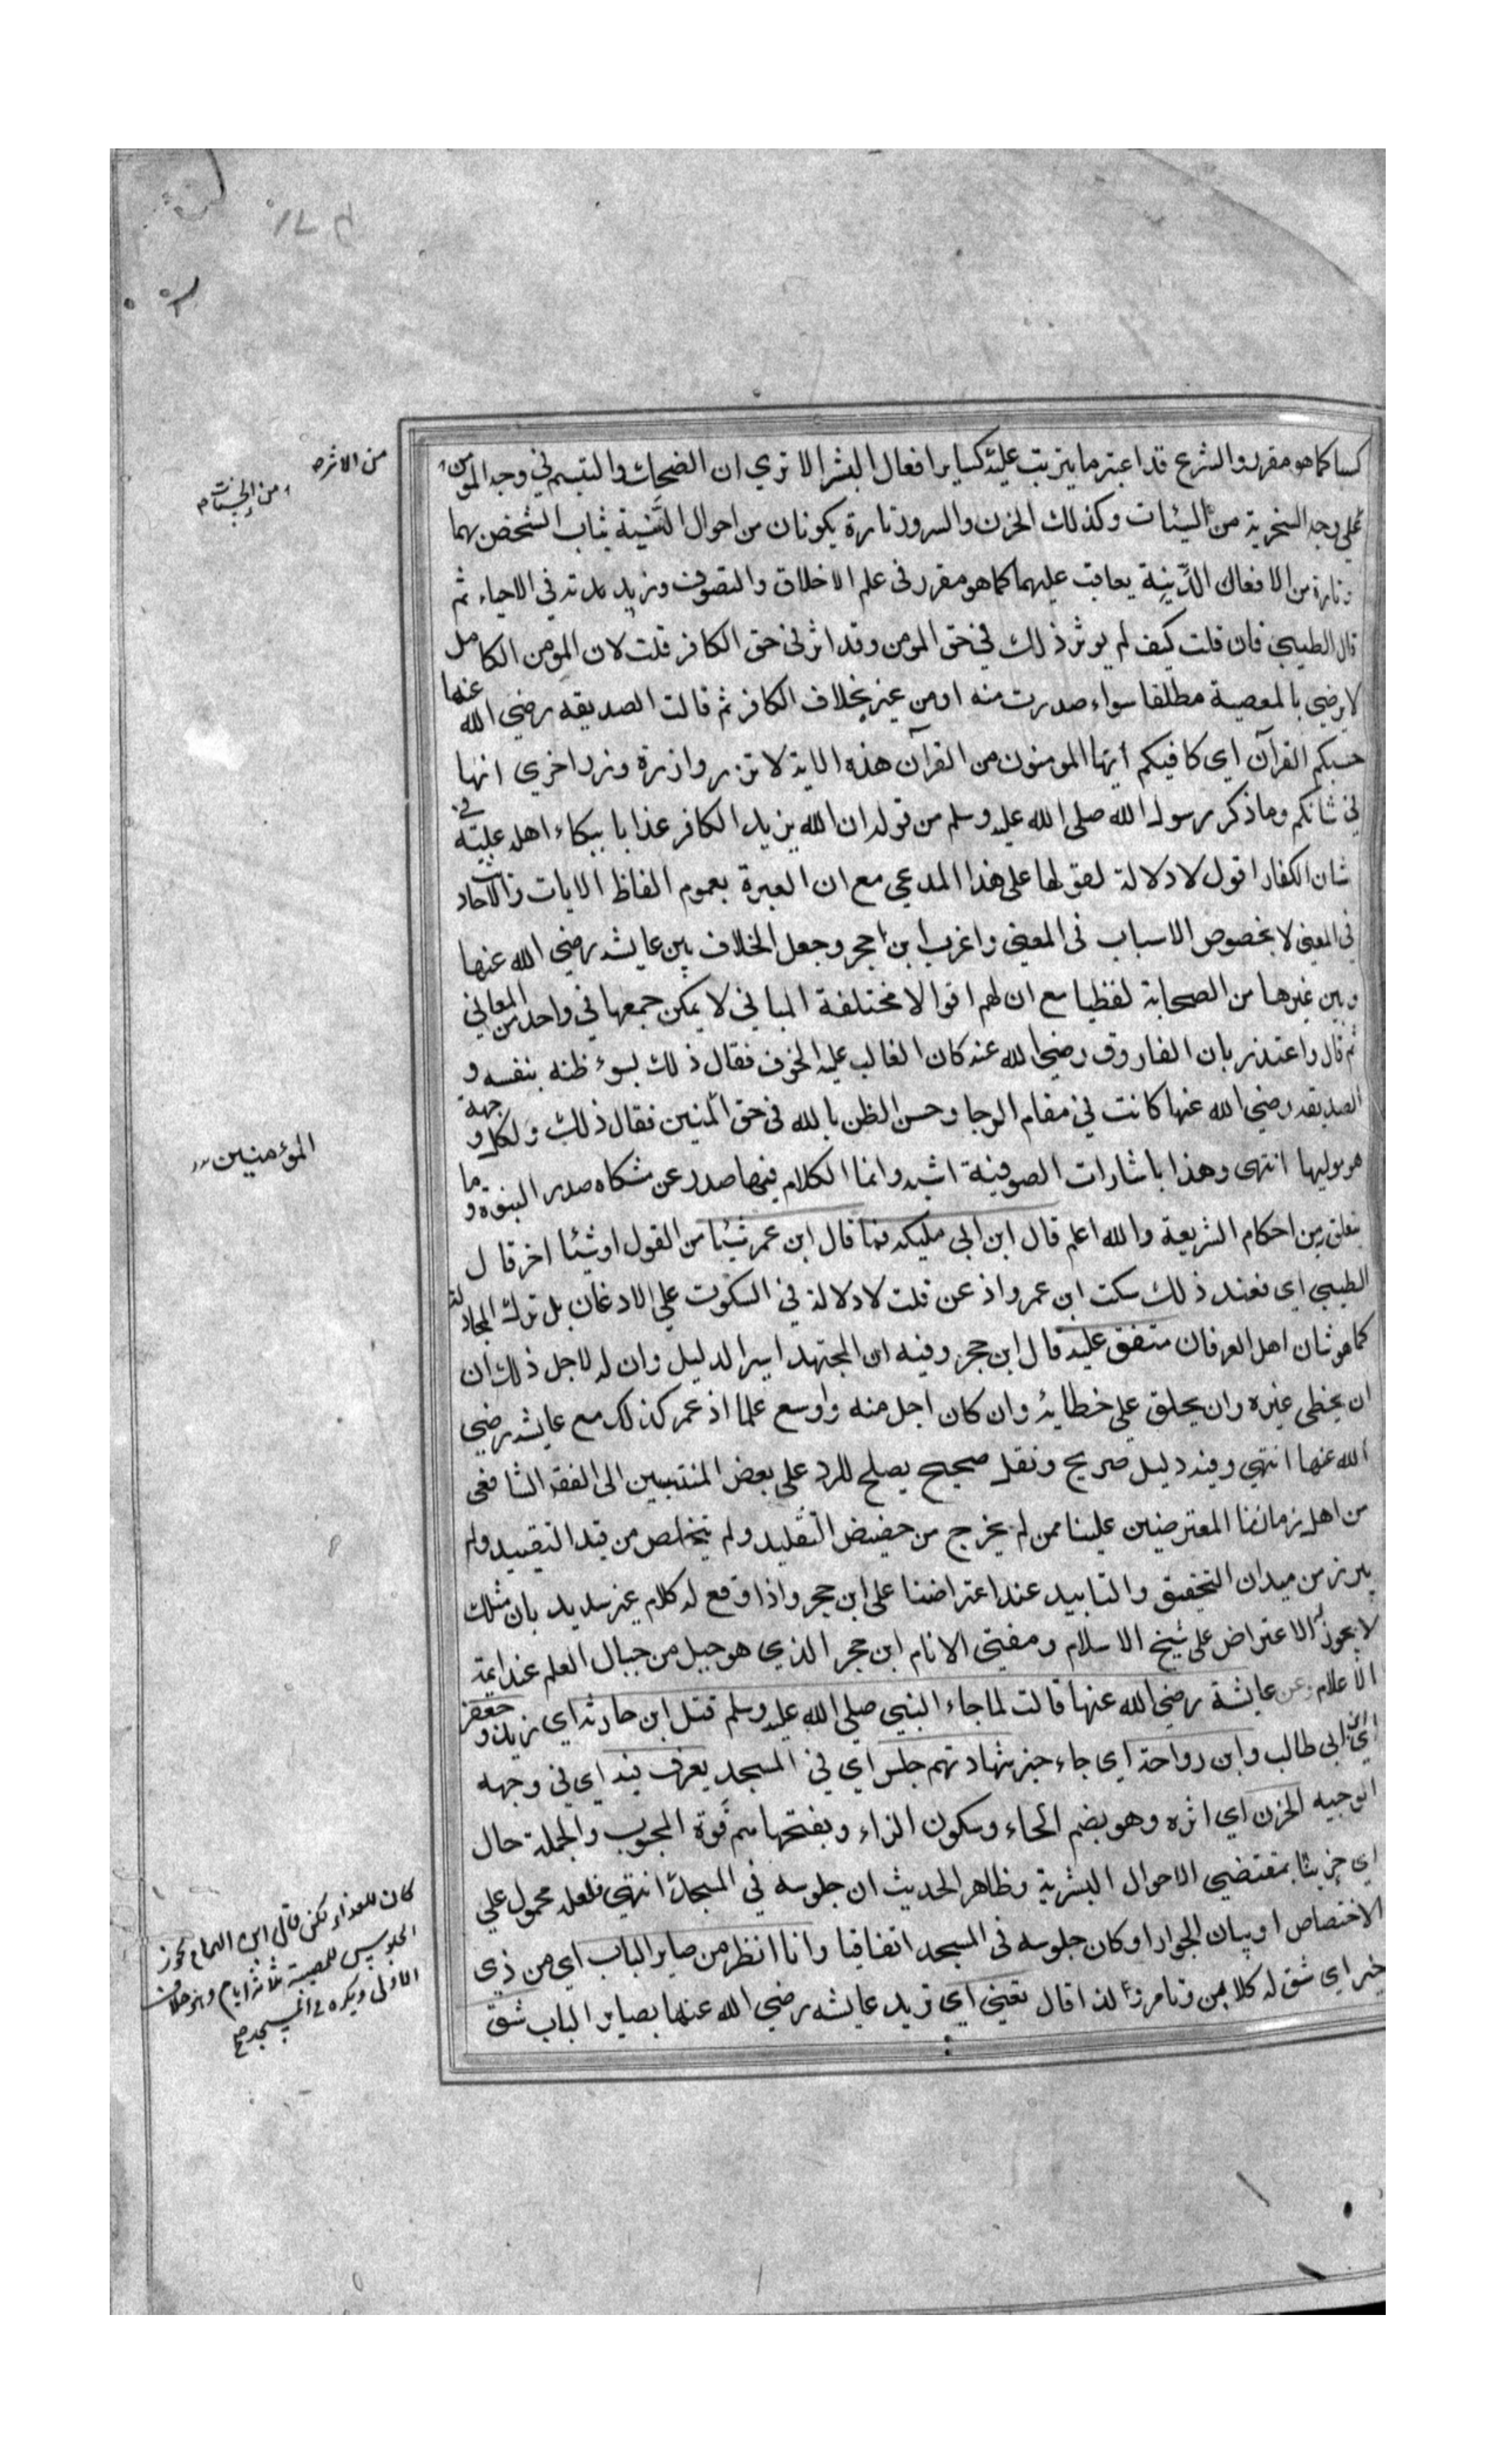 كسبا كما هو مقرر والشرع قد اعتبر ما يترتب عليه كساير افعال البشر الا تري ان الضحك والتبسم في وجه المومن
علي وجه السخرية من السيئات وكذلك الحزن والسرور تارة يكونان من احوال السنية يثاب الشخص بهما
وتارة من الافعال الدنية يعاقب عليهما كما هو مقرر في علم الاخلاق والتصوف وزيد بدته في الاحياء ثم
قال الطيبي فان قلت كيف لم يوثر ذلك في حق المومن وقد اثر في حق الكافر قلت لان المومن الكامل
لا يرضي بالمعصية مطلقا سواء صدرت منه او من غير بخلاف الكافر ثم قالت الصديقه رضي الله عنها
حسبكم القرآن اي كافيكم ايها المومنون من القرآن هذه الاية لا تزر وازرة وزر اخري انها
في شانكم وما ذكر رسول الله صلي الله عليه وسلم من قوله ان الله يزيد الكافر عذابا ببكاء اهله عليه في
شان الكفار اقول لا دلالة لقولها علي هذا المدعي مع ان العبرة بعموم الفاظ الايات والاحاد
في المعني لا بخصوص الاسباب في المعني واغرب ابن حجر وجعل الخلاف بين عايشه رضي الله عنها
وبين غيرها من الصحابة لفظيا مع ان لهم اقوالا مختلفة المباني لا يمكن جمعها في واحد من المعاني
ثم قال واعتذر بان الفاروق رضي الله عنه كان الغالب عليه الخوف فقال ذلك بسوء ظنه بنفسه و
الصديقه رضي الله عنها كانت في مقام الرجا وحسن الظن بالله في حق المنين فقال ذلك ولكل وجهة
هو موليها انتهي وهذا باشارات الصوفية اشبه وانما الكلام فيما صدر عن مشكاه صدر النبوة وما
يتعلق من احكام الشريعة والله اعلم قال ابن ابي مليكه فما قال ابن عمر شيئا من القول او شيئا اخر قال
الطيبي اي فعند ذلك سكت ابن عمر واذعن قلت لا دلالة في السكوت علي الاذعان بل ترك المجادلة
كما هو شان اهل العرفان متفق عليه قال ابن حجر وفيه ان المجتهد اسير الدليل وان له لاجل ذلك ان
ان يخطي غيره وان يحلق علي خطايه وان كان اجل منه واوسع علما اذ عمر كذلك مع عايشه رضي
الله عنها انتهي وفيه دليل صريح ونقل صحيح يصلح للرد علي بعض المنتسبين الي الفقه الشافعي
من اهل زماننا المعترضين علينا ممن لم يخرج من حضيض التقليد ولم يتخلص من قيد التقييد ولم
يبرز من ميدان التحقيق والتاييد عند اعتراضنا علي ابن حجر واذا وقع له كلام غير سديد بان مثلك
لا يجوز له الاعتراض علي شيخ الاسلام ومفتي الانام ابن حجر الذي هو جبل من جبال العلم عند ايمة
الاعلام وعن عايشة رضي الله عنها قالت لما جاء النبي صلي الله عليه وسلم قتل ابن حارثه اي زيد وجعفر
اي ابن ابي طالب وابن رواحة اي جاء خبر شهادتهم جلس اي في المسجد يعرف فيه اي في وجهه
الوجيه الحزن اي اثره وهو بضم الحاء وسكون الزاء وبفتحهما ثم قوة المحبوب والجملة حال
اي حزينا بمقتضي الاحوال البشرية وظاهر الحديث ان جلوسه في المسجد انتهي فلعله محمول علي
الاختصاص او بيان الجواز او كان جلوسه في المسجد اتفاقيا وانا انظر من صاير الباب اي من ذي
خبر اي شق له كلابن وتامر ولذا قال تعني اي تريد عايشه رضي الله عنها بصاير الباب شق
من الاثره
ومن الحسنات
المؤمنين
كان للعذار لكن قال ابن الهمام يجوز
الجلوس للمصيبة ثلاثة ايام وهو خلاف
الاولى ويكره في المسجد صح